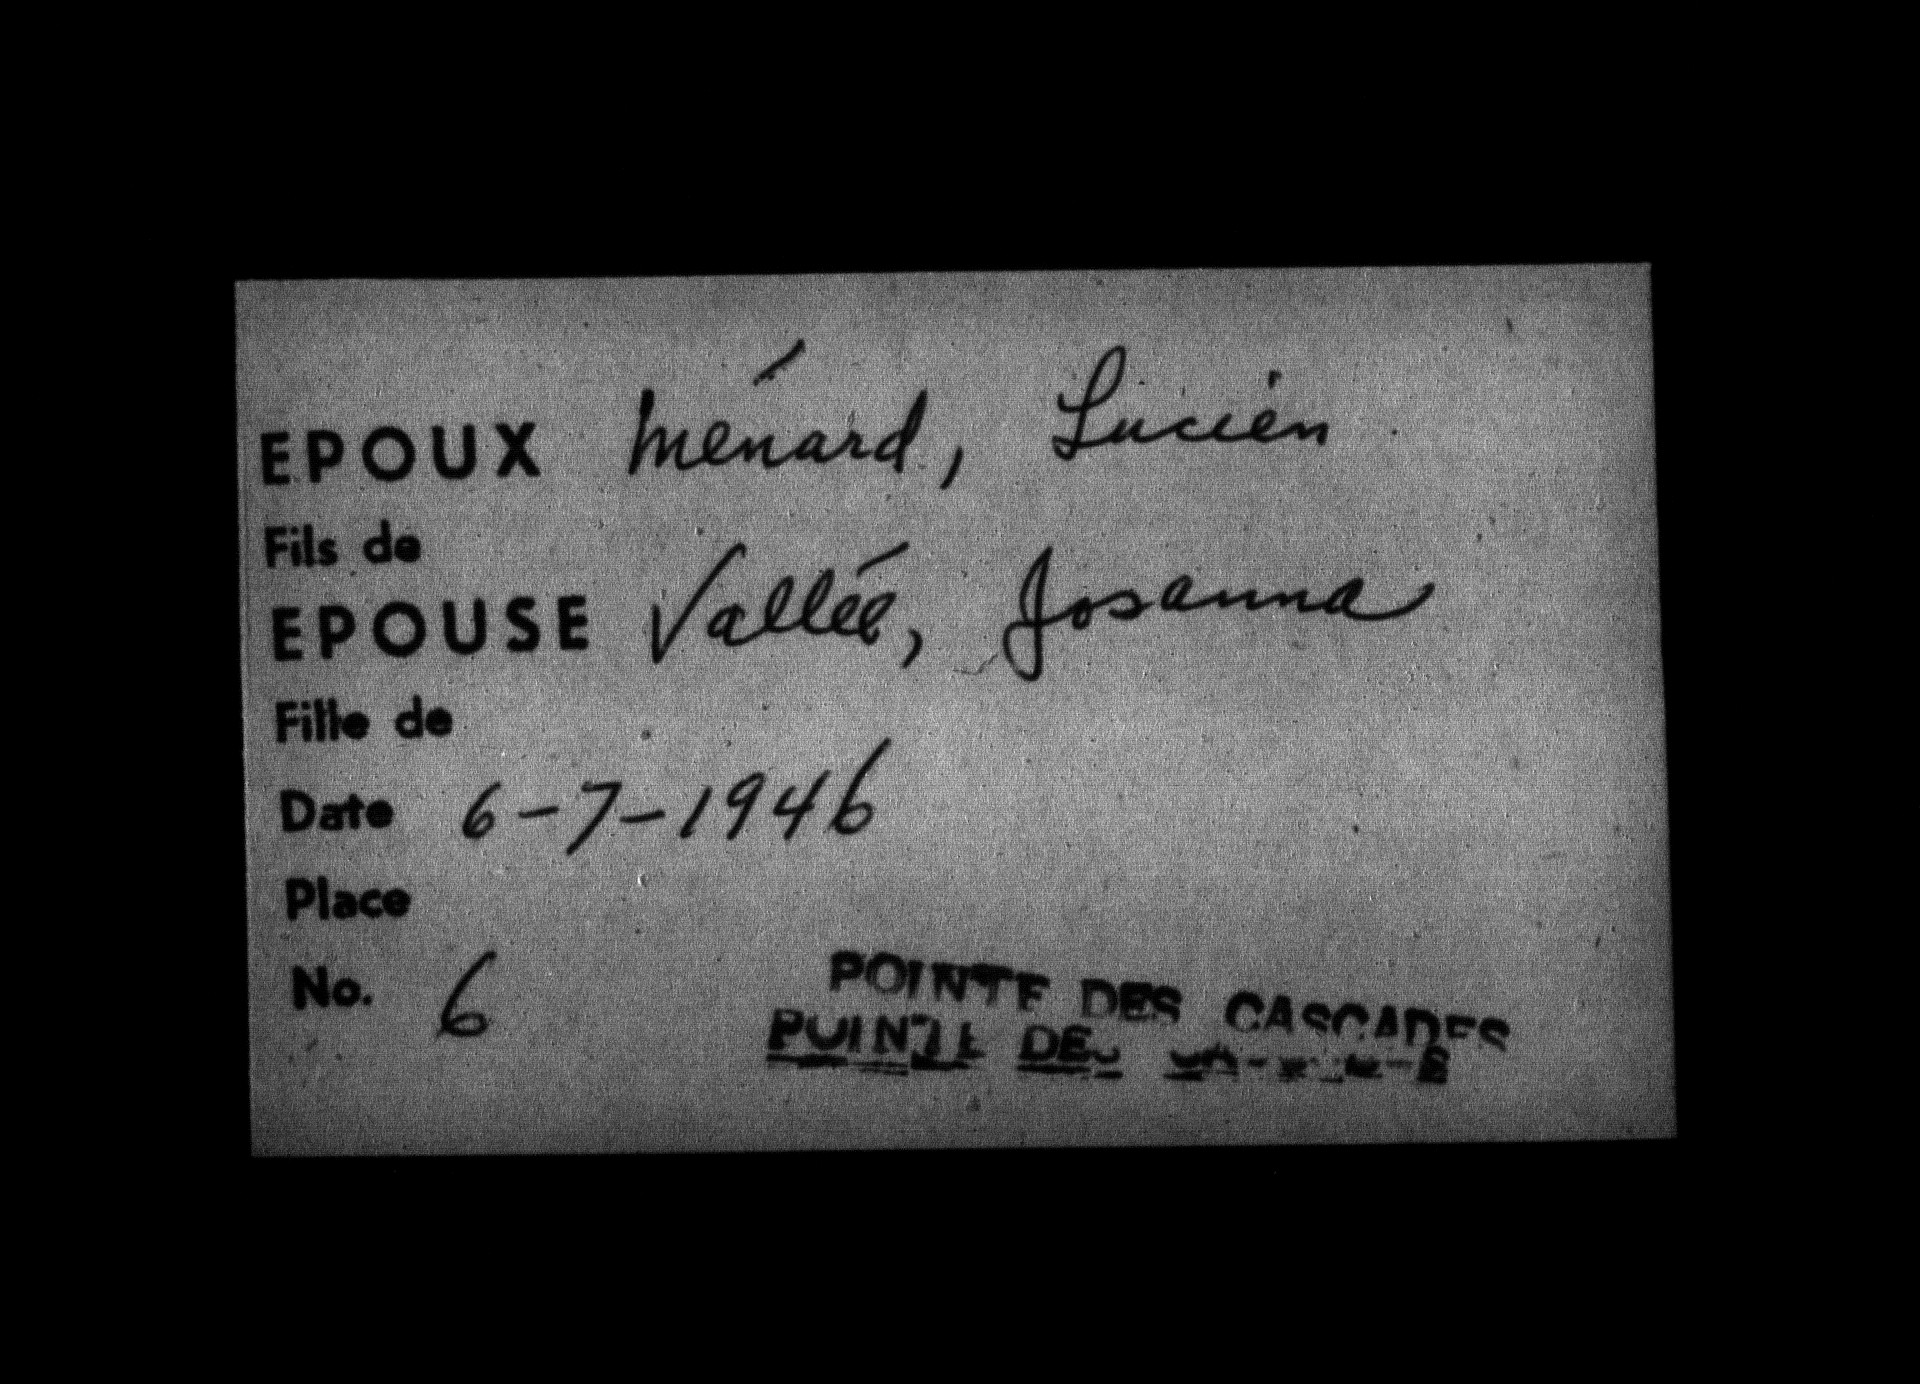 EPOUX Ménard, Lucien
Fils de
EPOUSE Vallée, Josanna
Fille de
Date 6-7-1946
Place
No. 6
POINTE DES CASCADES
POINTE DES